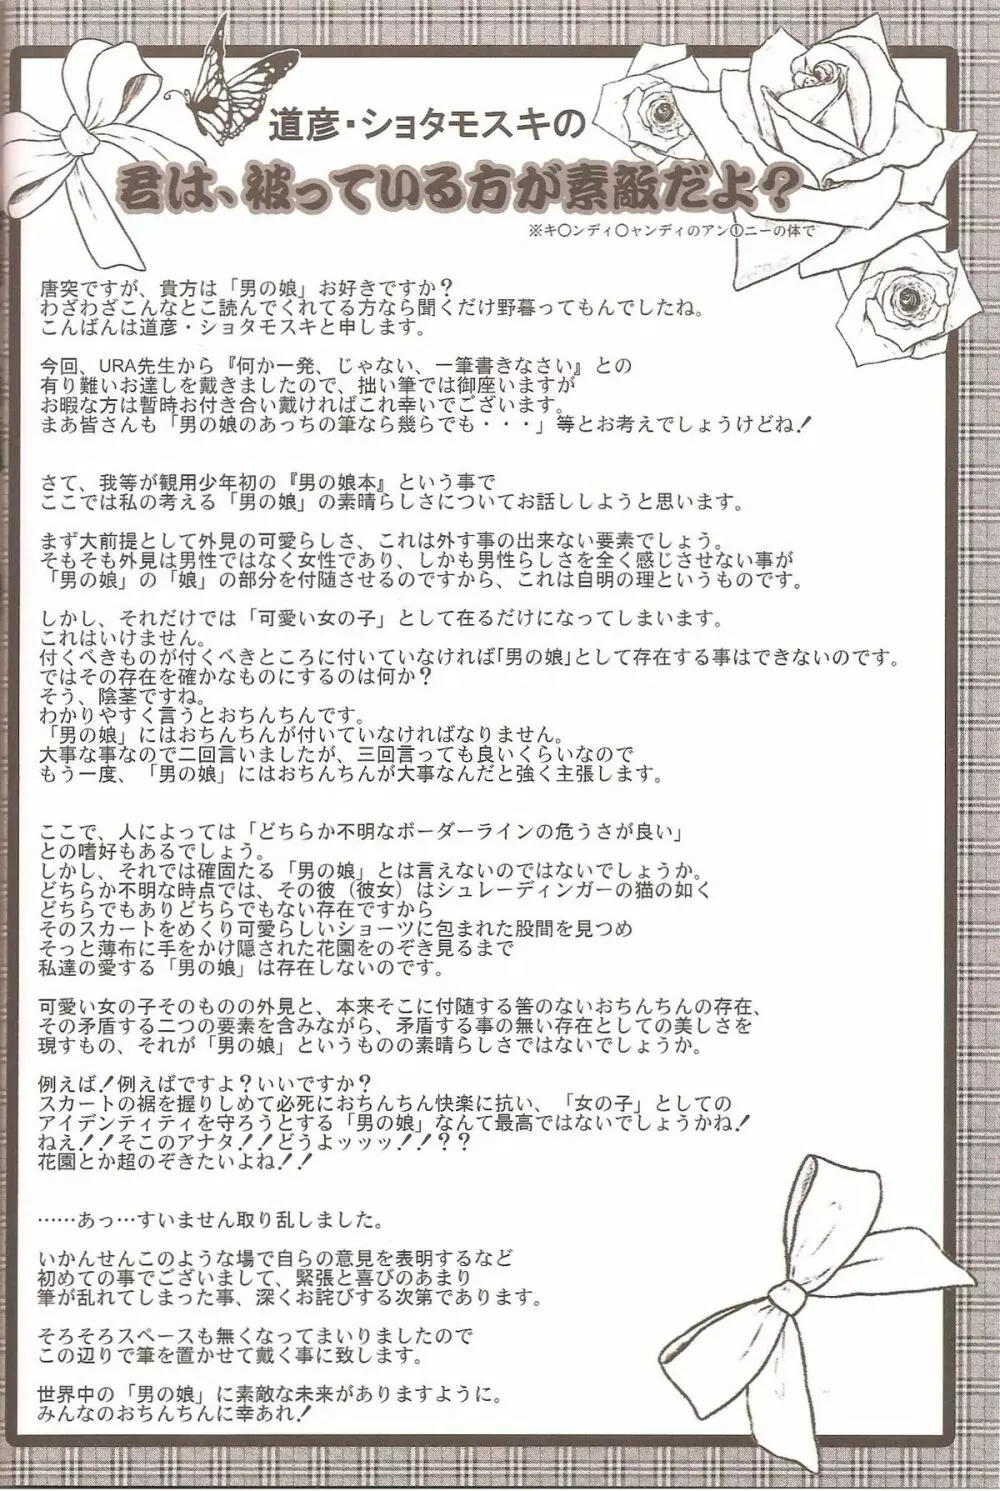 道彦・ショタモスキの
君は、被っている方が素敵だよ?
※キ○ンディ○ャンディのアン○ニーの体で
唐突ですが、貴方は「男の娘」お好きですか?
わざわざこんなとこ読んでくれてる方なら聞くだけ野暮ってもんでしたね。
こんばんは道彦・ショタモスキと申します。
今回、URA先生から『何か一発、じゃない、一筆書きなさい』との
有り難いお達しを戴きましたので、拙い筆では御座いますが
お暇な方は暫時お付き合い戴ければこれ幸いでございます。
まあ皆さんも「男の娘のあっちの筆なら幾らでも・・・」等とお考えでしょうけどね!
さて、我等が観用少年初の『男の娘本』という事で
ここでは私の考える「男の娘」の素晴らしさについてお話ししようと思います。
まず大前提として外見の可愛らしさ、これは外す事の出来ない要素でしょう。
そもそも外見は男性ではなく女性であり、しかも男性らしさを全く感じさせない事が
「男の娘」の「娘」の部分を付随させるのですから、これは自明の理というものです。
しかし、それだけでは「可愛い女の子」として在るだけになってしまいます。
これはいけません。
付くべきものが付くべきところに付いていなければ「男の娘」として存在する事はできないのです。
ではその存在を確かなものにするのは何か?
そう、陰茎ですね。
わかりやすく言うとおちんちんです。
「男の娘」にはおちんちんが付いていなければなりません。
大事な事なので二回言いましたが、三回言っても良いくらいなので
もう一度、「男の娘」にはおちんちんが大事なんだと強く主張します。
ここで、人によっては「どちらか不明なボーダーラインの危うさが良い」
との嗜好もあるでしょう。
しかし、それでは確固たる「男の娘」とは言えないのではないでしょうか。
どちらか不明な時点では、その彼（彼女）はシュレーディンガーの猫の如く
どちらでもありどちらでもない存在ですから
そのスカートをめくり可愛らしいショーツに包まれた股間を見つめ
そっと薄布に手をかけ隠された花園をのぞき見るまで
私達の愛する「男の娘」は存在しないのです。
可愛い女の子そのものの外見と、本来そこに付随する筈のないおちんちんの存在、
その矛盾する二つの要素を含みながら、矛盾する事の無い存在としての美しさを
現すもの、それが「男の娘」というものの素晴らしさではないでしょうか。
例えば!例えばですよ?いいですか?
スカートの裾を握りしめて必死におちんちん快楽に抗い、「女の子」としての
アイデンティティを守ろうとする「男の娘」なんて最高ではないでしょうかね!
ねえ!!そこのアナタ!!どうよッッッ!!??
花園とか超のぞきたいよね!!
……あっ…すいません取り乱しました。
いかんせんこのような場で自らの意見を表明するなど
初めての事でございまして、緊張と喜びのあまり
筆が乱れてしまった事、深くお詫びする次第であります。
そろそろスペースも無くなってまいりましたので
この辺りで筆を置かせて戴く事に致します。
世界中の「男の娘」に素敵な未来がありますように。
みんなのおちんちんに幸あれ!